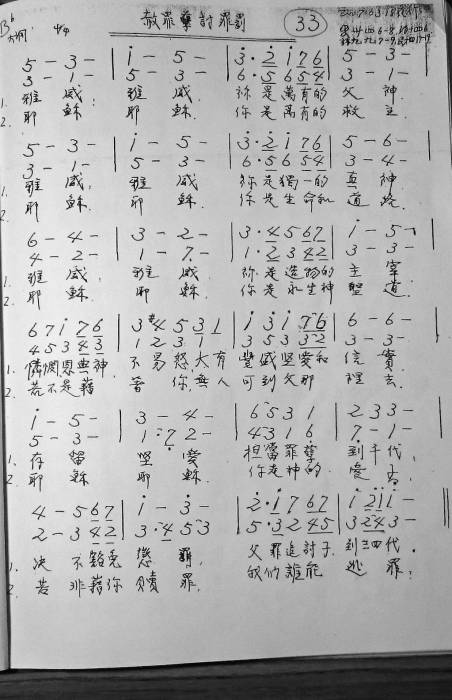 赦罪孽討罪罰 33
B♭大調 4/4
5 - 3 - | i - 5 - | 3·2 i 7 6 | 5 - 3 -
3 - 1 - | 5 - 3 - | 6·5 6 5 4 | 3 - 1 -
1. 雅威, 雅威 祢是萬有的 父神
2. 耶穌, 耶穌. 你是萬有的 救主
5 - 3 - | i - 5 - | 3·2 i 7 6 | 5 - 6 -
3 - 1 - | 5 - 3 - | 6·5 6 5 4 | 3 - 4 -
1. 雅威, 雅威 祢是獨一的 真神
2. 耶穌, 耶穌. 你是生命和 道路.
6 - 4 - | 3 - 2 - | 3·4 5 6 7 | i - 5 -
4 - 2 - | 1 - 7 - | 1·2 3 4 2 | 3 - 3 -
1. 雅威, 雅威 祢是造物的 主宰
2. 耶穌, 耶穌. 你是永生神 聖道.
6 7 i 7 6 | 3 #4 5 3 1 | i 3 i 7 6 | 6 - 6 -
4 5 3 4 3 | 1 2 3 3 1 | 3 5 3 3 2 | 3 - 3 -
1. 憐憫恩典神, 不易怒,大有 豐盛堅愛和 信實
2. 若不是藉 著你,無人 可到父那 裡去.
i - 5 - | 3 - 4 - | 6 5 3 1 | 2 3 3 -
5 - 3 - | 1·7 2 - | 4 3 1 6 | 7 - 1 -
1. 存留 堅愛 担當罪孽 到千代,
2. 耶穌 耶穌. 你是神的 愛子,
4 - 5 6 7 | i - 3 - | 2·1 7 6 7 | i 2 i i -
2 - 3 4 2 | 3·4 5 3 | 5·3 2 4 5 | 3 2 4 3 -
1. 决不豁免 懲罰, 父罪追討子, 到三四代.
2. 若非藉你 贖罪, 我們誰能 逃罪?